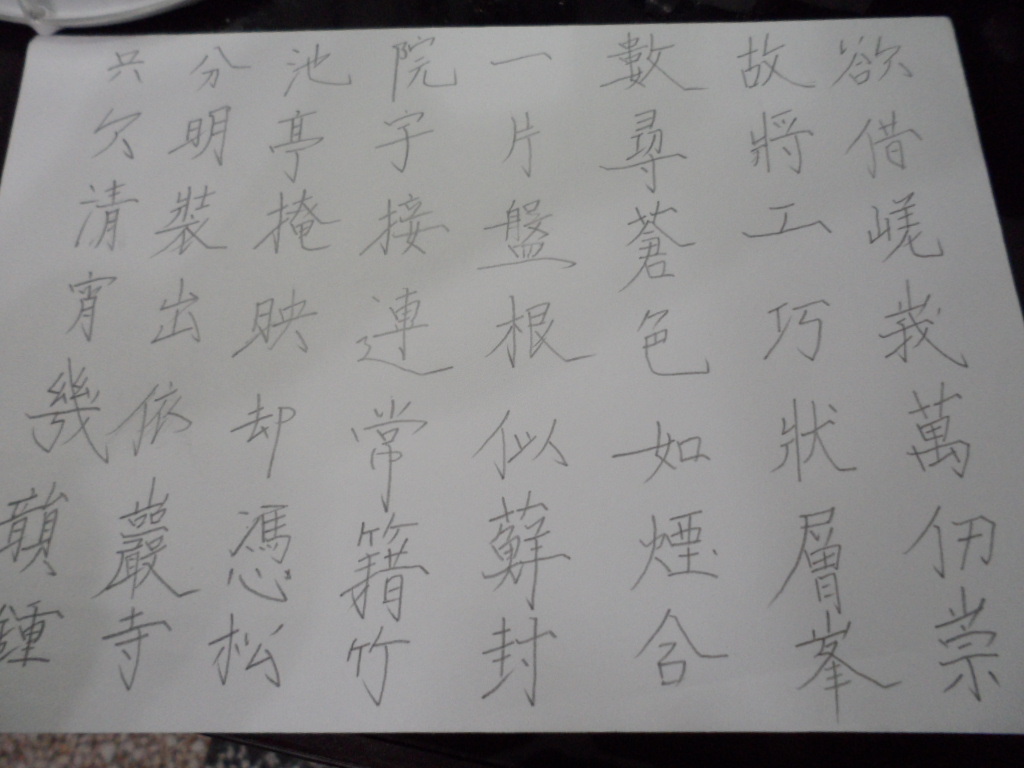 欲借嵯峨萬仞崇
故將工巧狀層峯
數尋蒼色如煙合
一片盤根似蘚封
院宇接連常籍竹
池亭掩映却馮松
分明裝出依巖寺
只欠清宵幾韻鍾